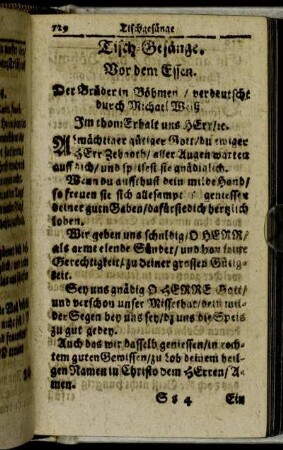 729 Tischgesänge
Tisch-Gesänge.
Vor dem Essen.
Der Brüder in Böhmen / verdeutscht
durch Michael Weiß
Im thon: Erhalt uns HErr/ıc.
Allmächtiger gütiger Gott/du ewiger
HErr Zebaoth/ aller Augen warten
auff dich/ und speisest sie gnädiglich.
Wenn du auffthust dein milde Hand/
so freuen sie sich allesampt / geniessen
deiner guten Gaben/dafür sie dich hertzlich
loben.
Wir geben uns schuldig/O HERR/
als arme elende Sünder/ und han keine
Gerechtigkeit/zu deiner grossen Gütig-
keit.
Sey uns gnädig O HERRE Gott/
und verschon unser Missethat/dein mil-
der Segen bey uns sey/dz uns die Speis
zu gut gedey.
Auch das wir dasselb geniessen/in rech-
tem guten Gewissen/zu Lob deinem heil-
gen Namen in Christo dem HErren/A-
men.
S s 4 Ein